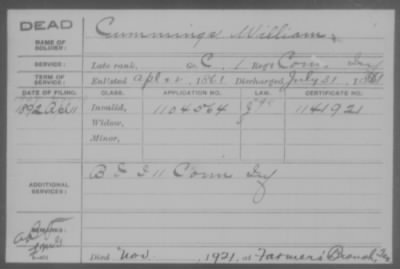 DEAD
Cummings, William,
NAME OF
SOLDIER:
SERVICE: Late rank, C, 1 Reg't Conn. Inf
TERM OF
SERVICE: Enlisted Apl 22, 1861 Discharged July 31, 1861
DATE OF FILING. CLASS. APPLICATION NO. LAW. CERTIFICATE NO.
1892 Apl 11 Invalid, 1104564 1141921
Widow,
Minor,
ADDITIONAL
SERVICES: B 11 Conn Inf
REMARKS:
Died Nov. , 1921, at Farmers Branch, Tex